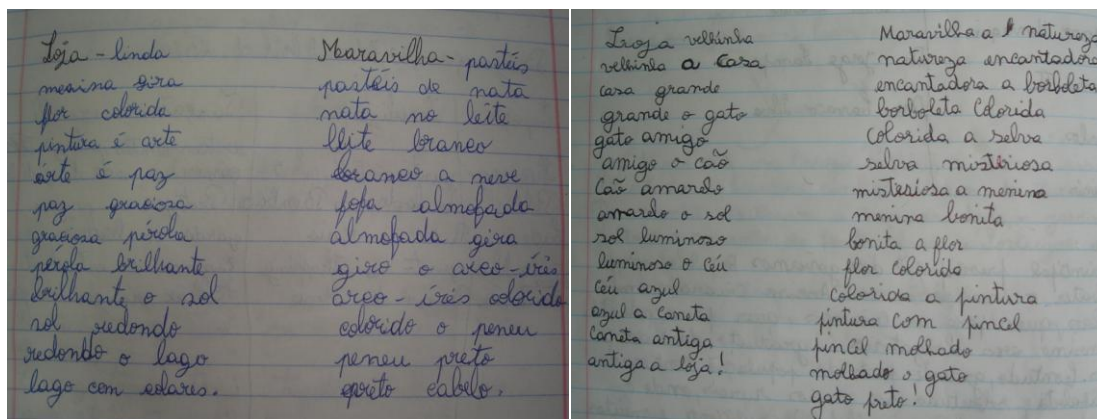 Loja - linda
menina gira
flor colorida
pintura é arte
arte é paz
paz graciosa
graciosa pérola
pérola brilhante
brilhante o sol
sol redondo
redondo o lago
lago com colares.
Maravilha - pastéis
pastéis de nata
nata no leite
lleite branco
branco a neve
fofa almofada
almofada gira
giro o arco-íris
arco-íris colorido
colorido o peneu
peneu preto
preto cabelo.
velhinha
velhinha a casa
casa grande
grande o gato
gato amigo
amigo o cão
cão amarelo
amarelo o sol
sol luminoso
luminoso o céu
céu azul
azul a caneta
caneta antiga
antiga a loja!
Maravilha a natureza
natureza encantadora
encantadora a borboleta
borboleta colorida
colorida a selva
selva mistiriosa
misteriosa a menina
menina bonita
bonita a flor
flor colorida
colorida a pintura
pintura com pincel
pincel molhado
molhado o gato
gato preto!